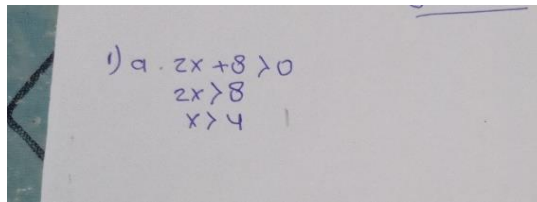 1) a. 2x + 8 > 0
2x > 8
x > 4